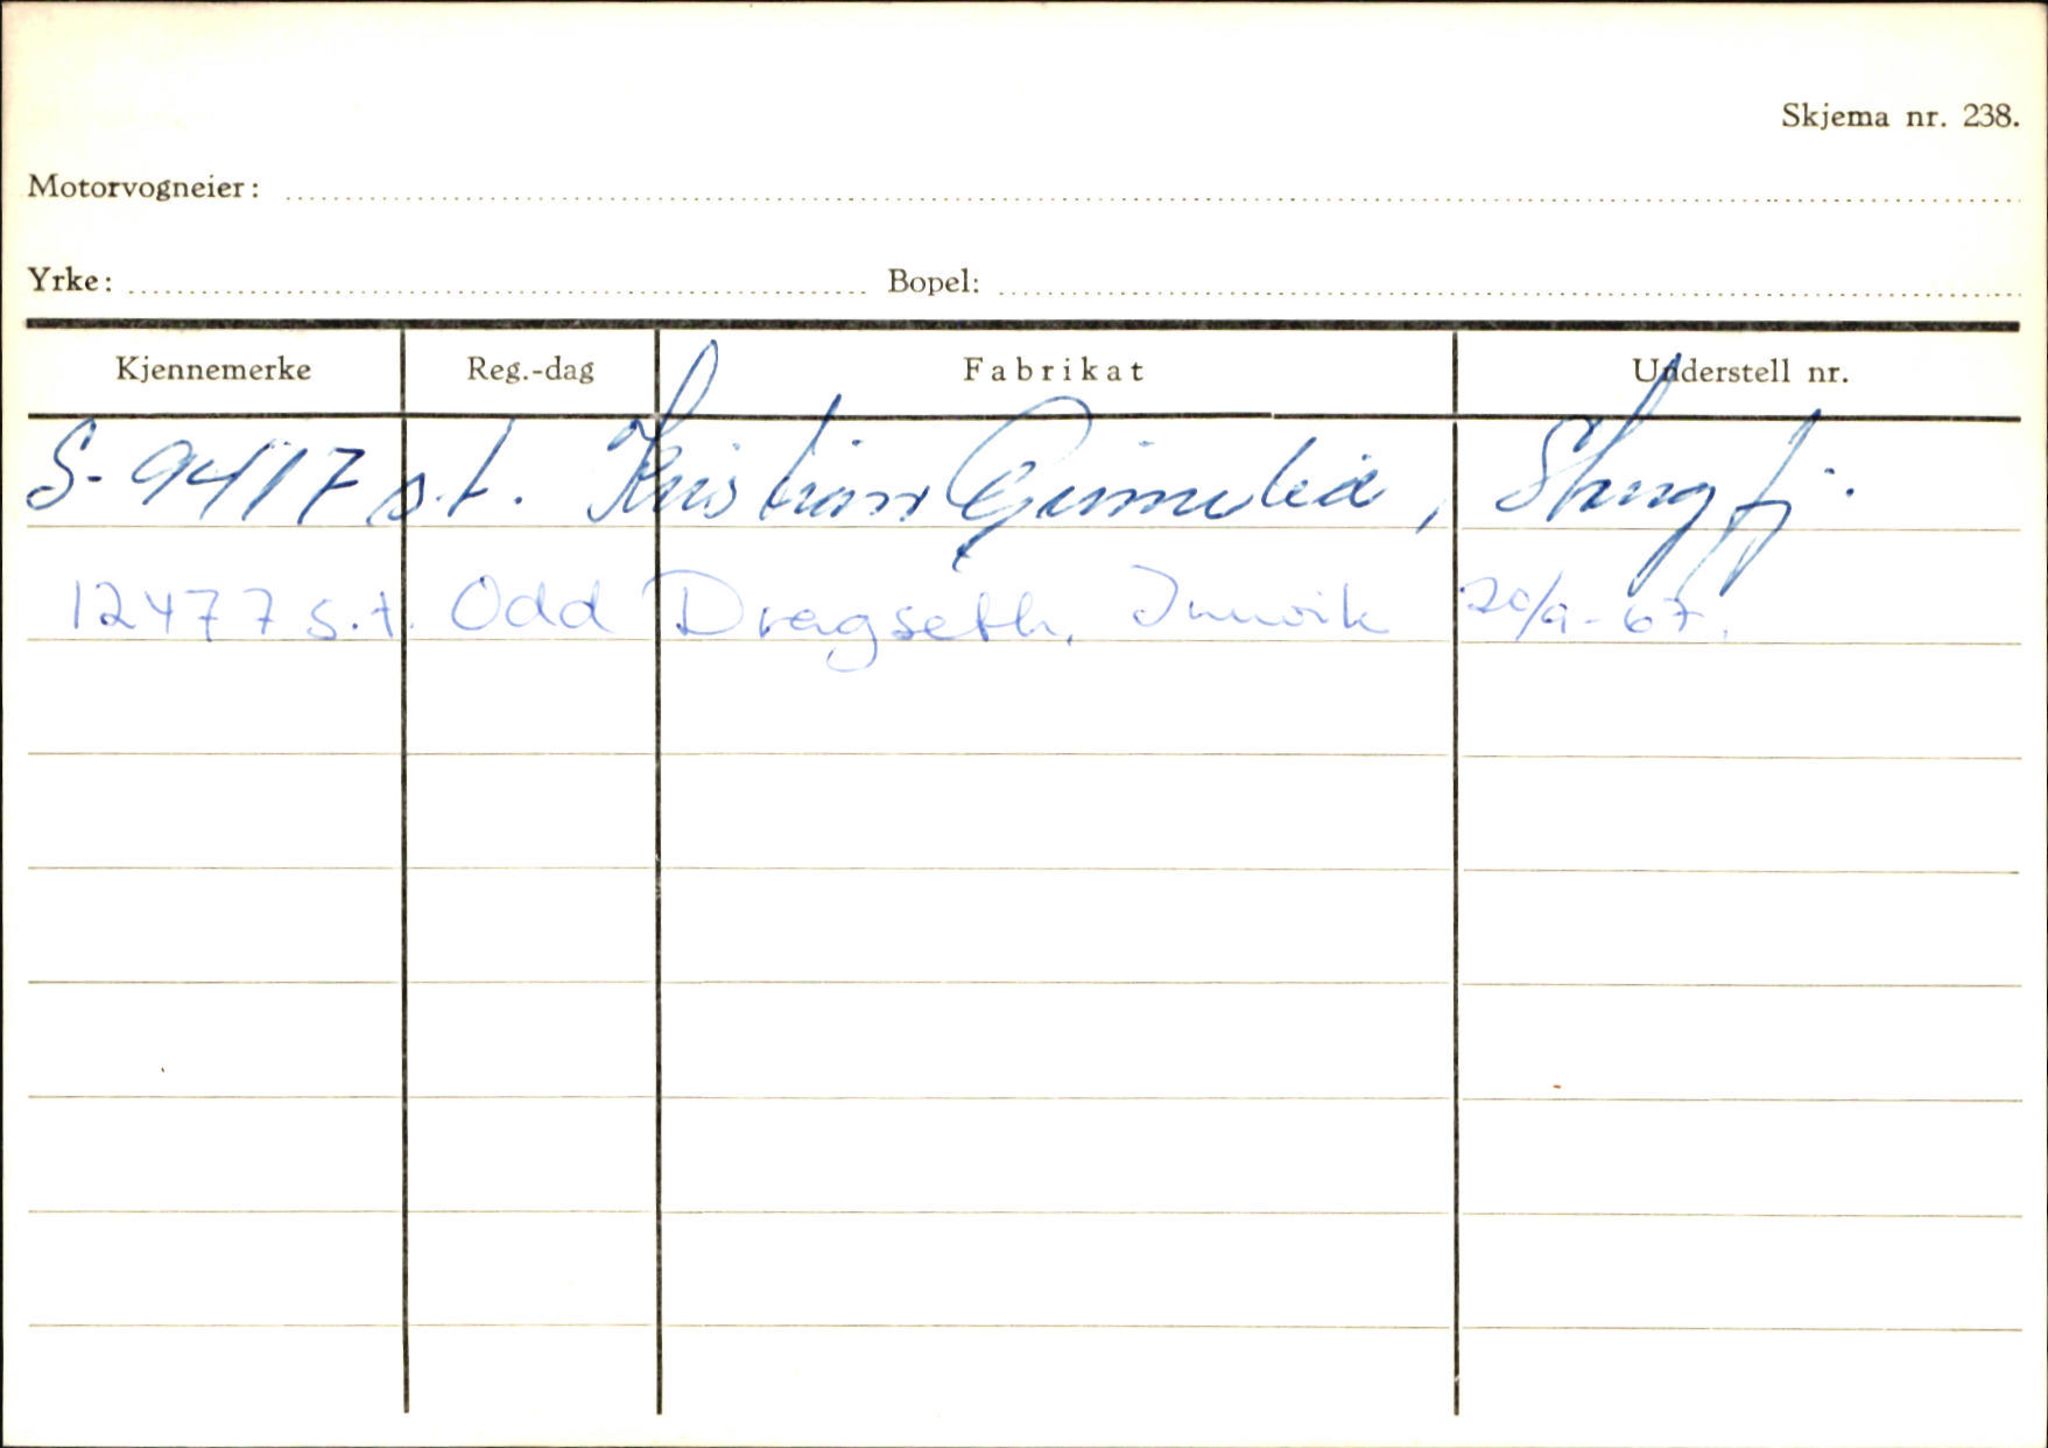 Skjema nr. 238.
Motorvogneier:
Yrke: Bopel:
Kjennemerke Reg.-dag Fabrikat Understell nr.
S-9417 s.t. Kristian Grimelid, Stongfj.
12477 s.t. Odd Dragseth, Innvik 20/9-67.